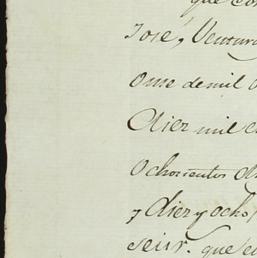 que con
José, Ventura
ome de mil o
Diez mil e
Ochocientos
y Diez y ocho
seis. que e